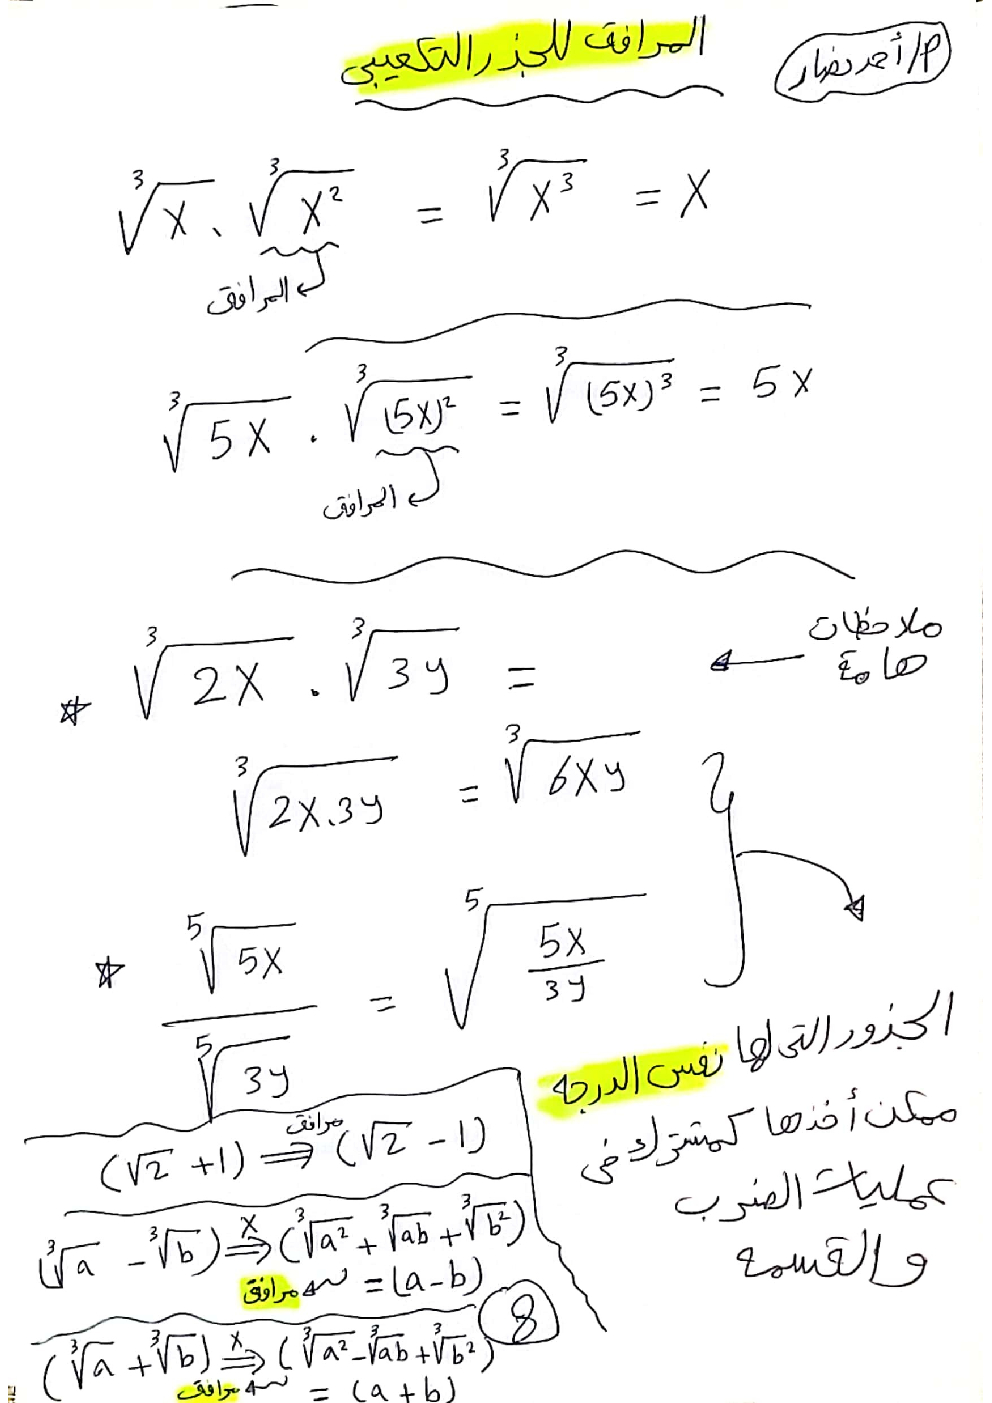 المرافق للجذر التكعيبي
م/أحمد نصار
∛x . ∛x² = ∛x³ = x
المرافق
∛5x . ∛(5x)² = ∛(5x)³ = 5x
المرافق
ملاحظات
هامة
* ∛2x . ∛3y =
∛2x.3y = ∛6xy
* ⁵√5x / ⁵√3y = ⁵√(5x/3y)
الجذور التي لها نفس الدرجة
ممكن أخذها كمشترك في
عمليات الضرب
والقسمة
(√2 + 1) ⇒ مرافق (√2 - 1)
(∛a - ∛b) ⇒ x (∛a² + ∛ab + ∛b²)
مرافق = (a-b)
(∛a + ∛b) ⇒ x (∛a² - ∛ab + ∛b²)
مرافق = (a+b)
8